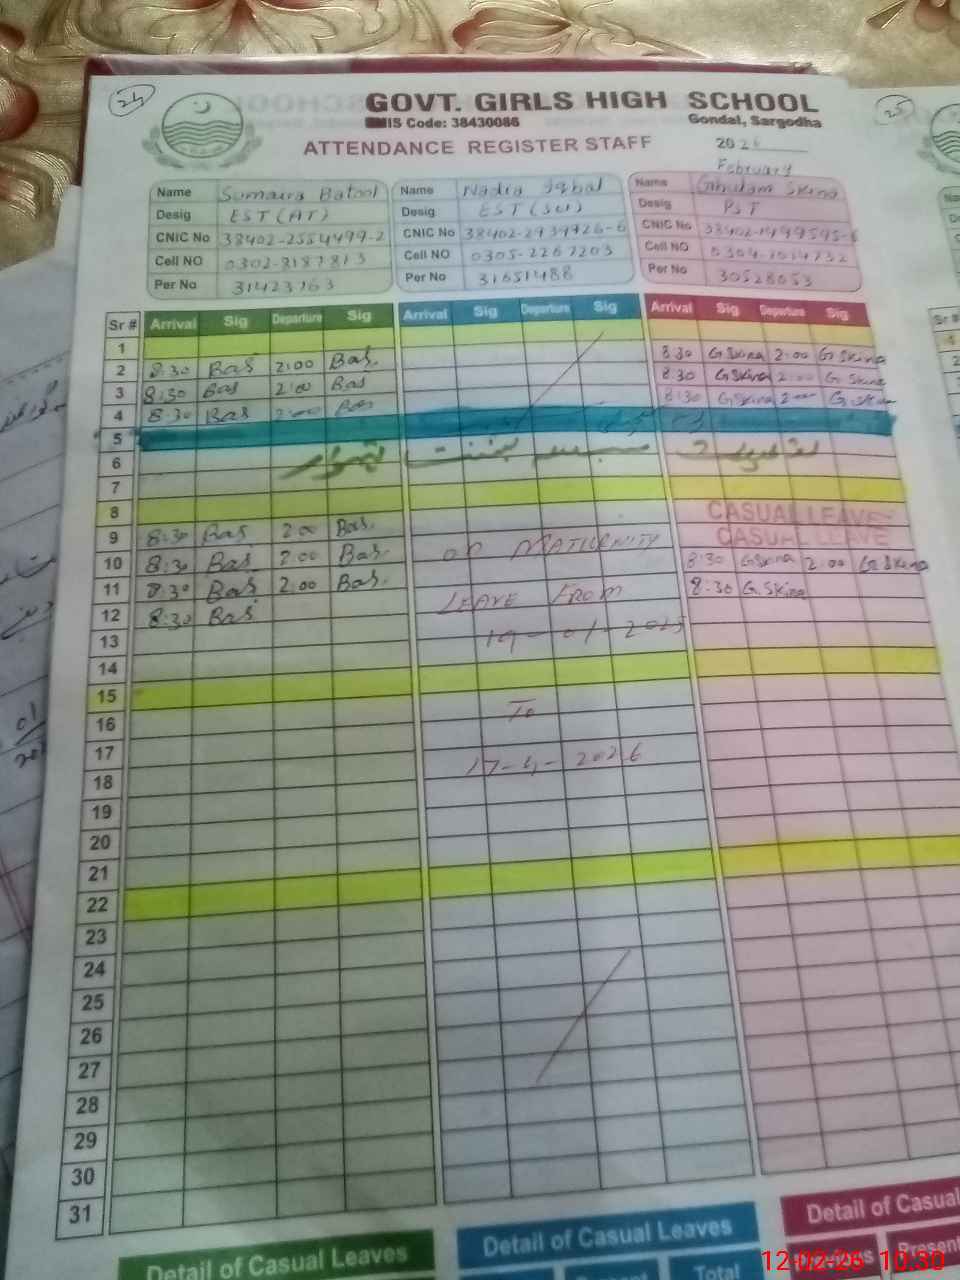 24
25
GOVT. GIRLS HIGH SCHOOL
EMIS Code: 38430086
Gondal, Sargodha
ATTENDANCE REGISTER STAFF
2026
February
Name Sumaira Batool
Desig EST (AT)
CNIC No 38402-2554499-2
Cell NO 0302-8187813
Per No 31423163
Name Nadia Iqbal
Desig EST (Sci)
CNIC No 38402-2939726-6
Cell NO 0305-2267203
Per No 31651488
Name Ghulam Skina
Desig PST
CNIC No 38402-1499595-6
Cell NO 0304-1014732
Per No 30528053
Sr # Arrival Sig Departure Sig Arrival Sig Departure Sig Arrival Sig Departure Sig
1
2 8:30 Bas 2:00 Bas. 8:30 G Skina 2:00 G Skina
3 8:30 Bas 2:00 Bas 8:30 G Skina 2:00 G Skina
4 8:30 Bas 2:00 Bas 8:30 G.Skina 2:00 G.Skina
5
6
7
8 CASUAL LEAVE
9 8:30 Bas 2:00 Bas. CASUAL LEAVE
10 8:30 Bas 2:00 Bas. ON MATIURNITY 8:30 GSkina 2:00 G.Skina
11 8:30 Bas 2:00 Bas. LEAVE FROM 8:30 G.Skina
12 8:30 Bas.
13 19-01-2025
14
15
16 To
17
18 17-4-2026
19
20
21
22
23
24
25
26
27
28
29
30
31
Detail of Casual Leaves
Detail of Casual Leaves
Detail of Casual
Present Total
Present
12-02-26 10:30